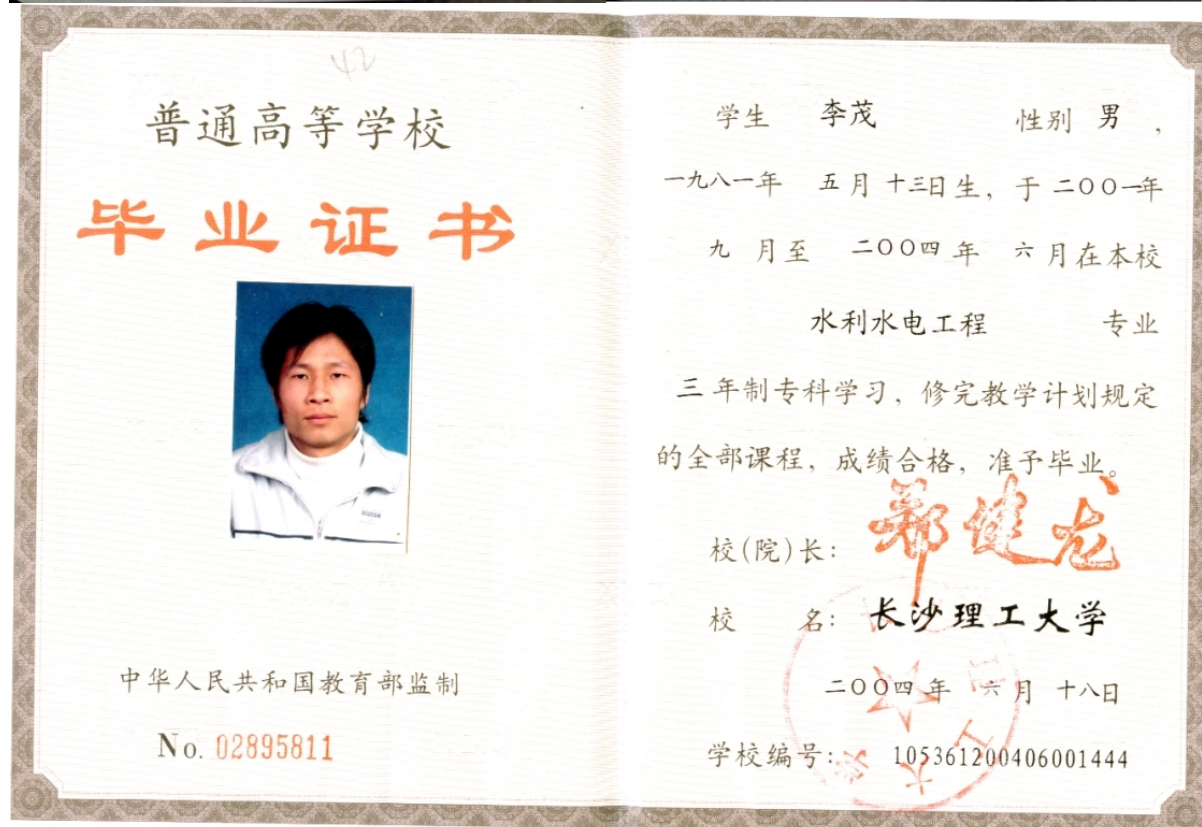 42
普通高等学校
毕业证书
中华人民共和国教育部监制
No. 02895811
学生 李茂 性别 男 ,
一九八一年 五月十三日生, 于二〇〇一年
九 月至 二〇〇四年 六月在本校
水利水电工程 专业
三年制专科学习, 修完教学计划规定
的全部课程, 成绩合格, 准予毕业。
校(院)长: 郑健龙
校 名: 长沙理工大学
二〇〇四年 六月 十八日
学校编号: 105361200406001444